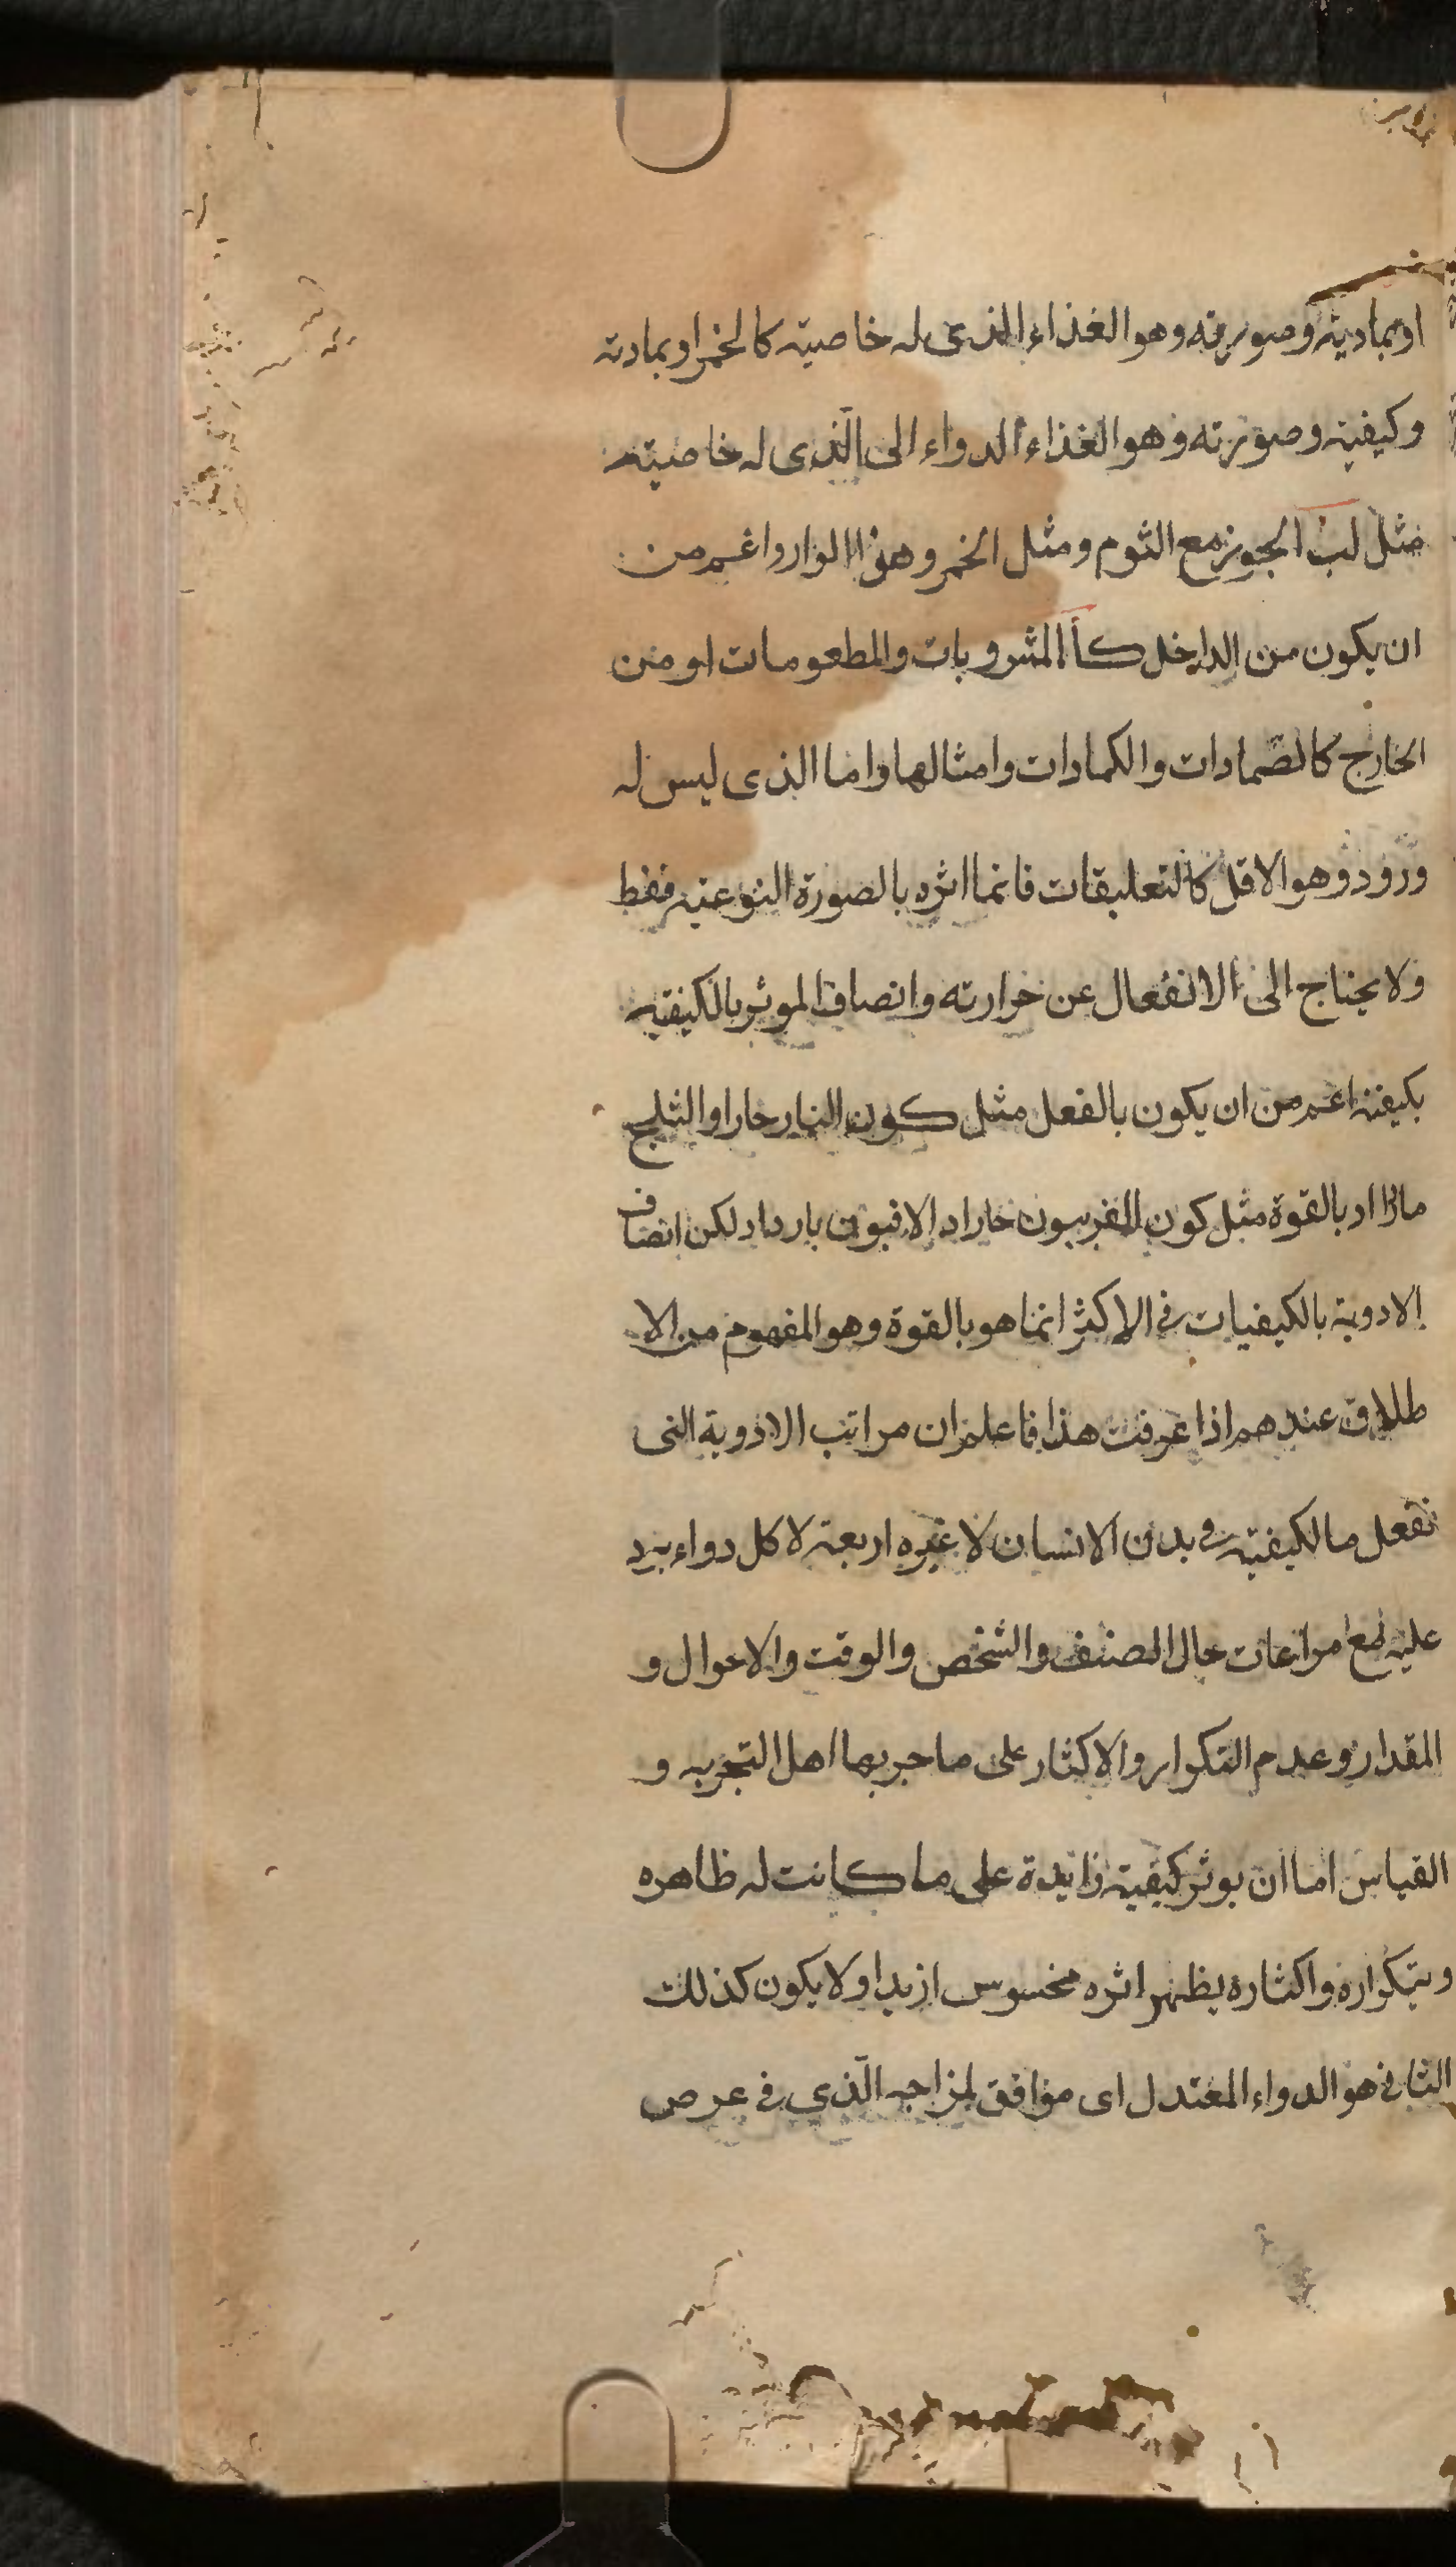 او بمادیته وصورته وهو الغذاء الذی له خاصیته کالخمر او بمادته
وکیفیته وصورته وهو الغذاء الدواء الی الّذی له خاصیته
مثل لب الجوز مع الثوم ومثل الخمر وهذا الوارد اعم من
ان یکون من الداخل کاالمشروبات والمطعومات او من
الخارج کالضمادات والکمادات وامثالها واما الذی لیس له
ورود وهو الاقل کالتعلیقات فانما اثره بالصورة النوعیه فقط
ولا یحتاج الی الانفعال عن حرارته واتصاف الموثر بالکیفیه
بکیفیة اعم من ان یکون بالفعل مثل کون النار حارا والثلج
باردا او بالقوة مثل کون الفربیون حارا والافیون باردا ولکن اتصاف
الادویة بالکیفیات فی الاکثر انما هو بالقوة وهو المفهوم من الا
طلاق عندهم اذا عرفت هذا فاعلم ان مراتب الادویة التی
تفعل مالکیفیته فی بدن الانسان لا غیره اربعة لا کل دواء یرد
علیه مع مراعات حال الصنف والشخص والوقت والاحوال و
المقدار وعدم التکرار والاکثار علی ما جربها اهل التجربه و
القیاس اما ان یوثر کیفیته زایدة علی ما کانت له ظاهره
وبتکراره واکثاره یظهر اثره محسوس ازید او لا یکون کذلک
الثانی هو الدواء المعتدل ای موافق لمزاجه الّذی فی عرض